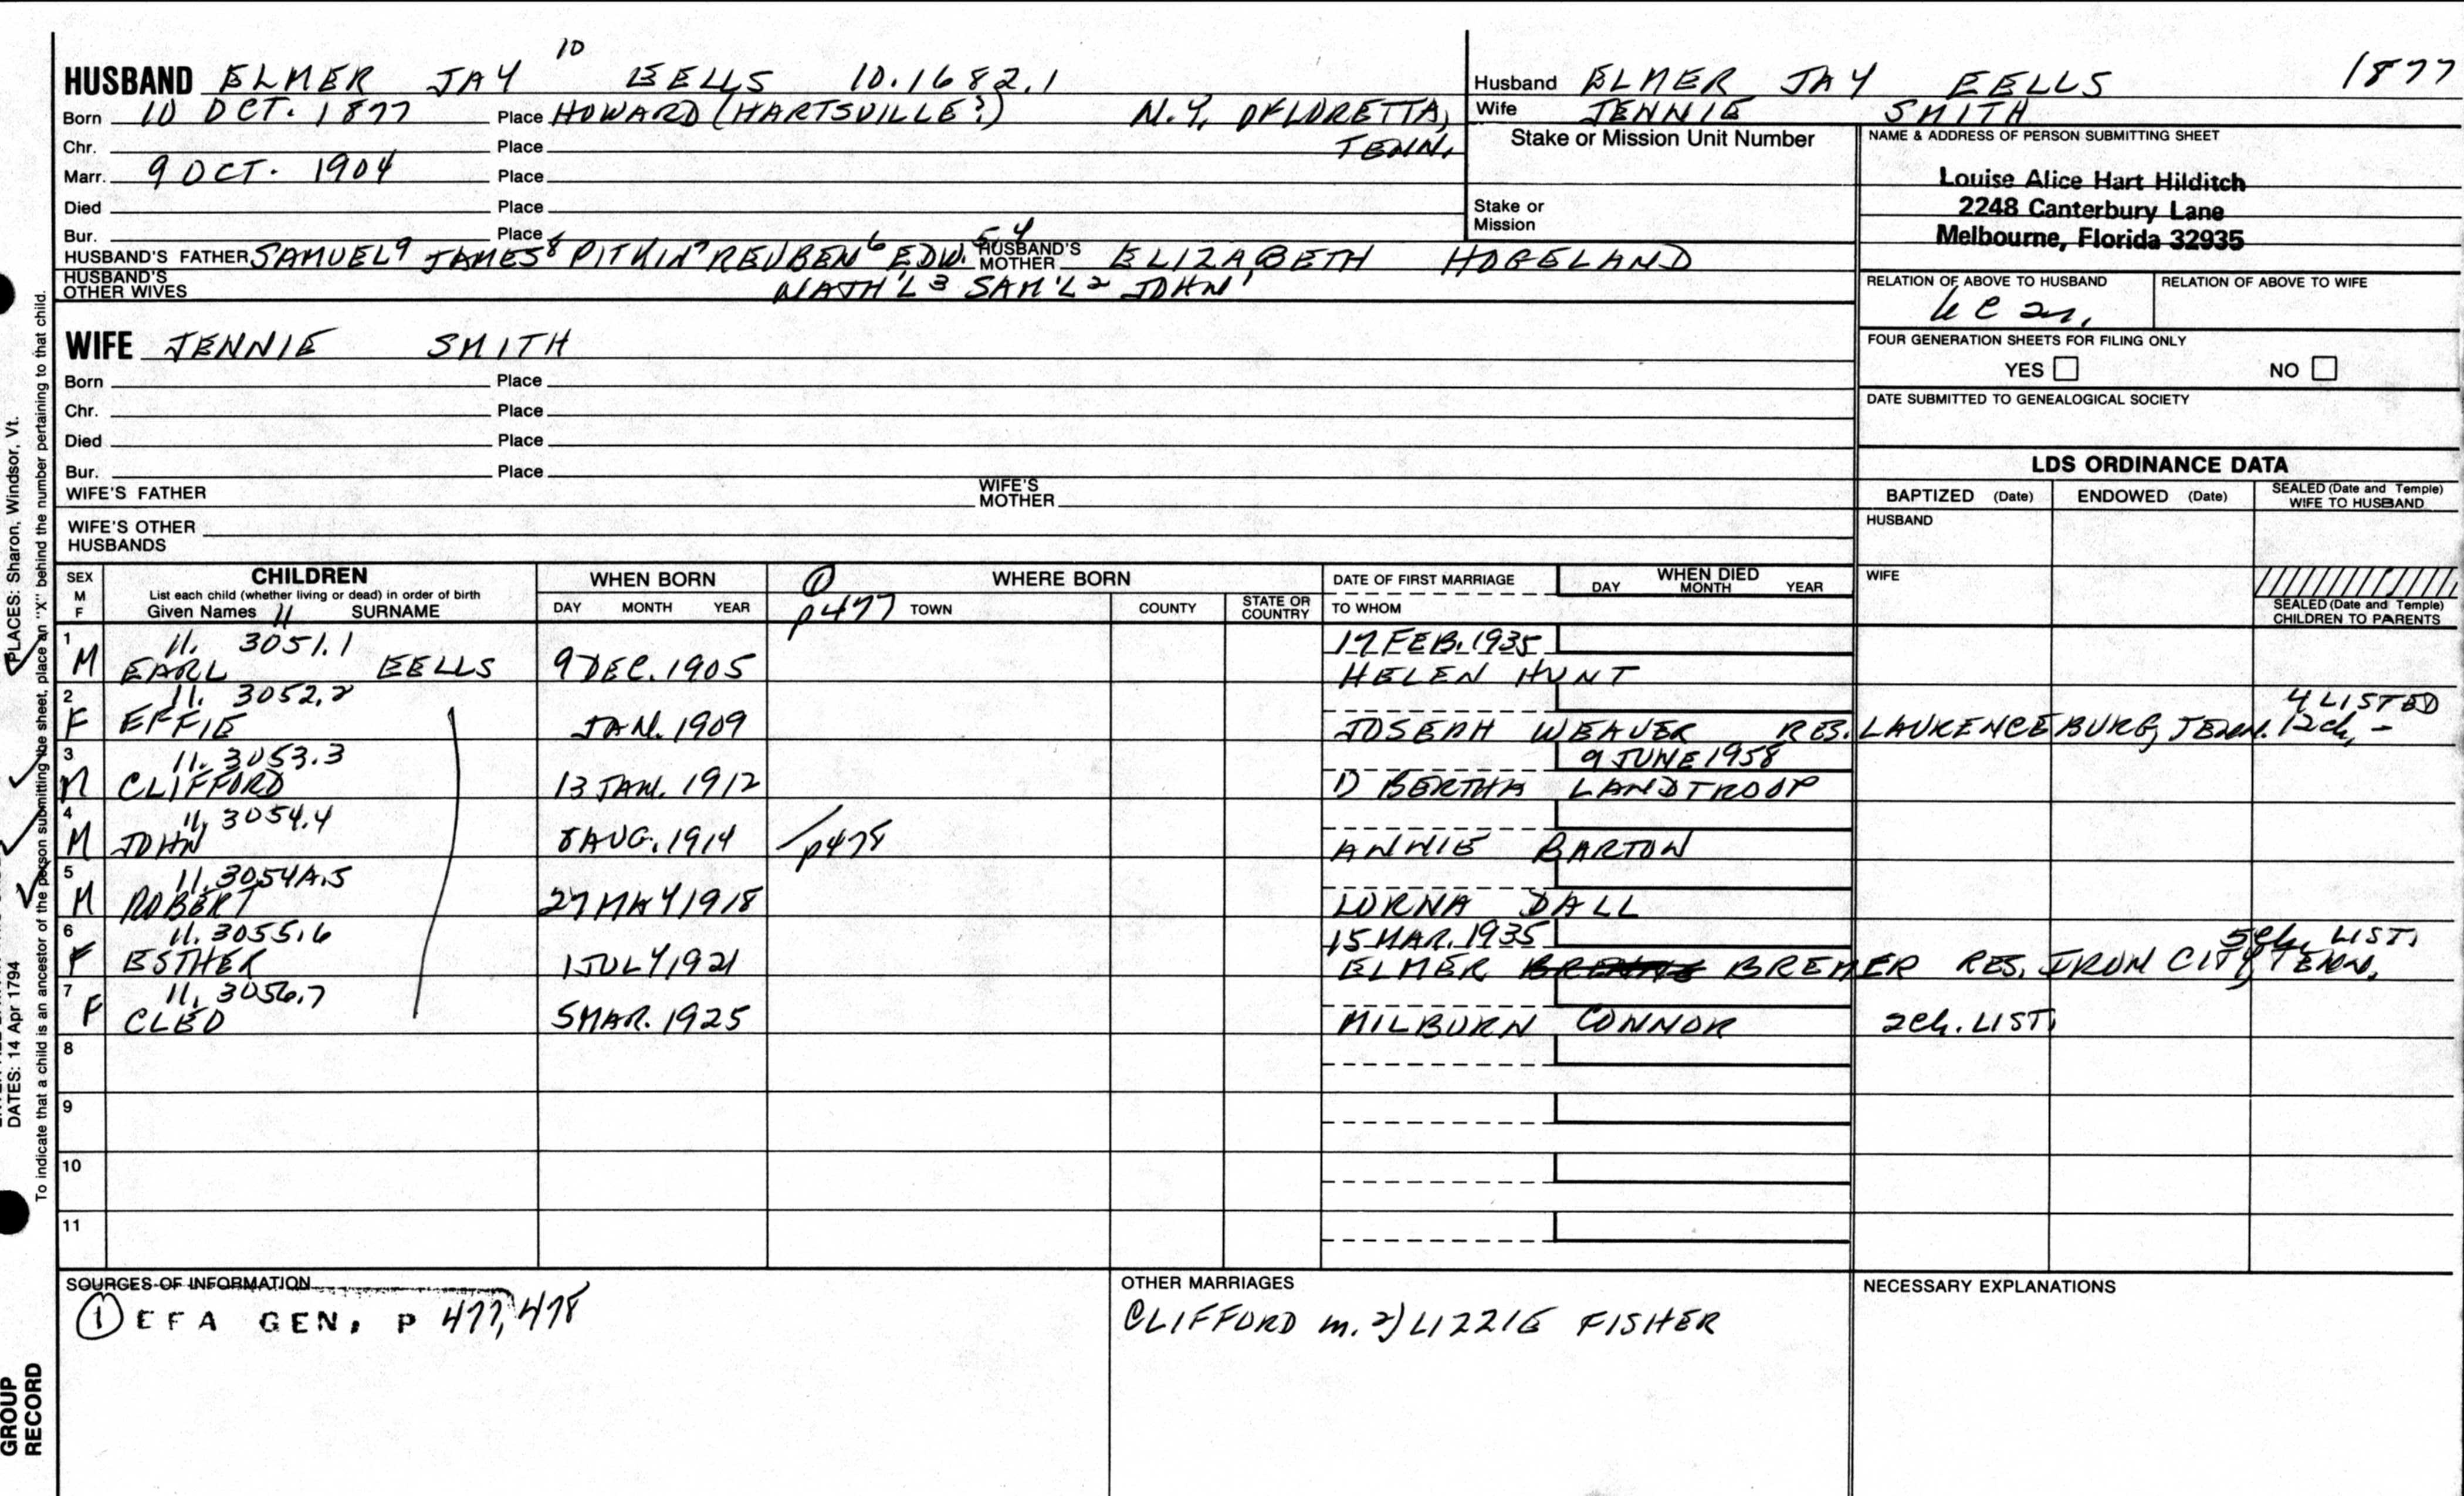 10
HUSBAND ELMER JAY EELLS 10.1682.1
Born 10 OCT. 1877 Place HOWARD (HARTSVILLE?) N.Y. OFLORETTA,
Chr. Place TENN.
Marr. 9 OCT. 1904 Place
Died Place
Bur. Place
HUSBAND'S FATHER SAMUEL9 JAMES8 PITKIN7 REUBEN6 EDW.5 4 HUSBAND'S MOTHER ELIZABETH HOGELAND
HUSBAND'S OTHER WIVES NATH'L3 SAM'L2 JOHN1
Husband ELMER JAY EELLS 1877
Wife JENNIE SMITH
Stake or Mission Unit Number
Stake or
Mission
NAME & ADDRESS OF PERSON SUBMITTING SHEET
Louise Alice Hart Hilditch
2248 Canterbury Lane
Melbourne, Florida 32935
RELATION OF ABOVE TO HUSBAND RELATION OF ABOVE TO WIFE
FOUR GENERATION SHEETS FOR FILING ONLY
YES NO
DATE SUBMITTED TO GENEALOGICAL SOCIETY
WIFE JENNIE SMITH
Born Place
Chr. Place
Died Place
Bur. Place
WIFE'S FATHER WIFE'S MOTHER
WIFE'S OTHER
HUSBANDS
LDS ORDINANCE DATA
BAPTIZED (Date) ENDOWED (Date) SEALED (Date and Temple) WIFE TO HUSBAND
HUSBAND
WIFE
SEALED (Date and Temple) CHILDREN TO PARENTS
SEX M F
CHILDREN
List each child (whether living or dead) in order of birth
Given Names 11 SURNAME
WHEN BORN
DAY MONTH YEAR
1 WHERE BORN
p477 TOWN COUNTY STATE OR COUNTRY
DATE OF FIRST MARRIAGE
TO WHOM
WHEN DIED
DAY MONTH YEAR
1 11. 3051.1 17 FEB. 1935
M EARL EELLS 9 DEC. 1905 HELEN HUNT
2 11. 3052.2 4 LISTED
F EFFIE JAN. 1909 JOSEPH WEAVER RES. LAURENCEBURG, TENN. 12 ch. -
3 11. 3053.3 9 JUNE 1958
M CLIFFORD 13 JAN. 1912 1) BERTHA LANDTROOP
4 11. 3054.4
M JOHN 8 AUG. 1914 p478 ANNIE BARTON
5 11. 3054A.5
M ROBERT 27 MAY 1918 LORNA DALL
6 11. 3055.6 15 MAR. 1935 5 ch. LIST.
F ESTHER 1 JULY 1921 ELMER BREMER RES. IRON CITY, TENN.
7 11. 3056.7
F CLEO 5 MAR. 1925 MILBURN CONNOR 2 ch. LIST.
8
9
10
11
SOURCES OF INFORMATION
1 EFA GEN. P 477, 478
OTHER MARRIAGES
CLIFFORD m. 2) LIZZIE FISHER
NECESSARY EXPLANATIONS
PLACES: Sharon, Windsor, Vt.
DATES: 14 Apr 1794
To indicate that a child is an ancestor of the person submitting the sheet, place an "X" behind the number pertaining to that child.
GROUP
RECORD